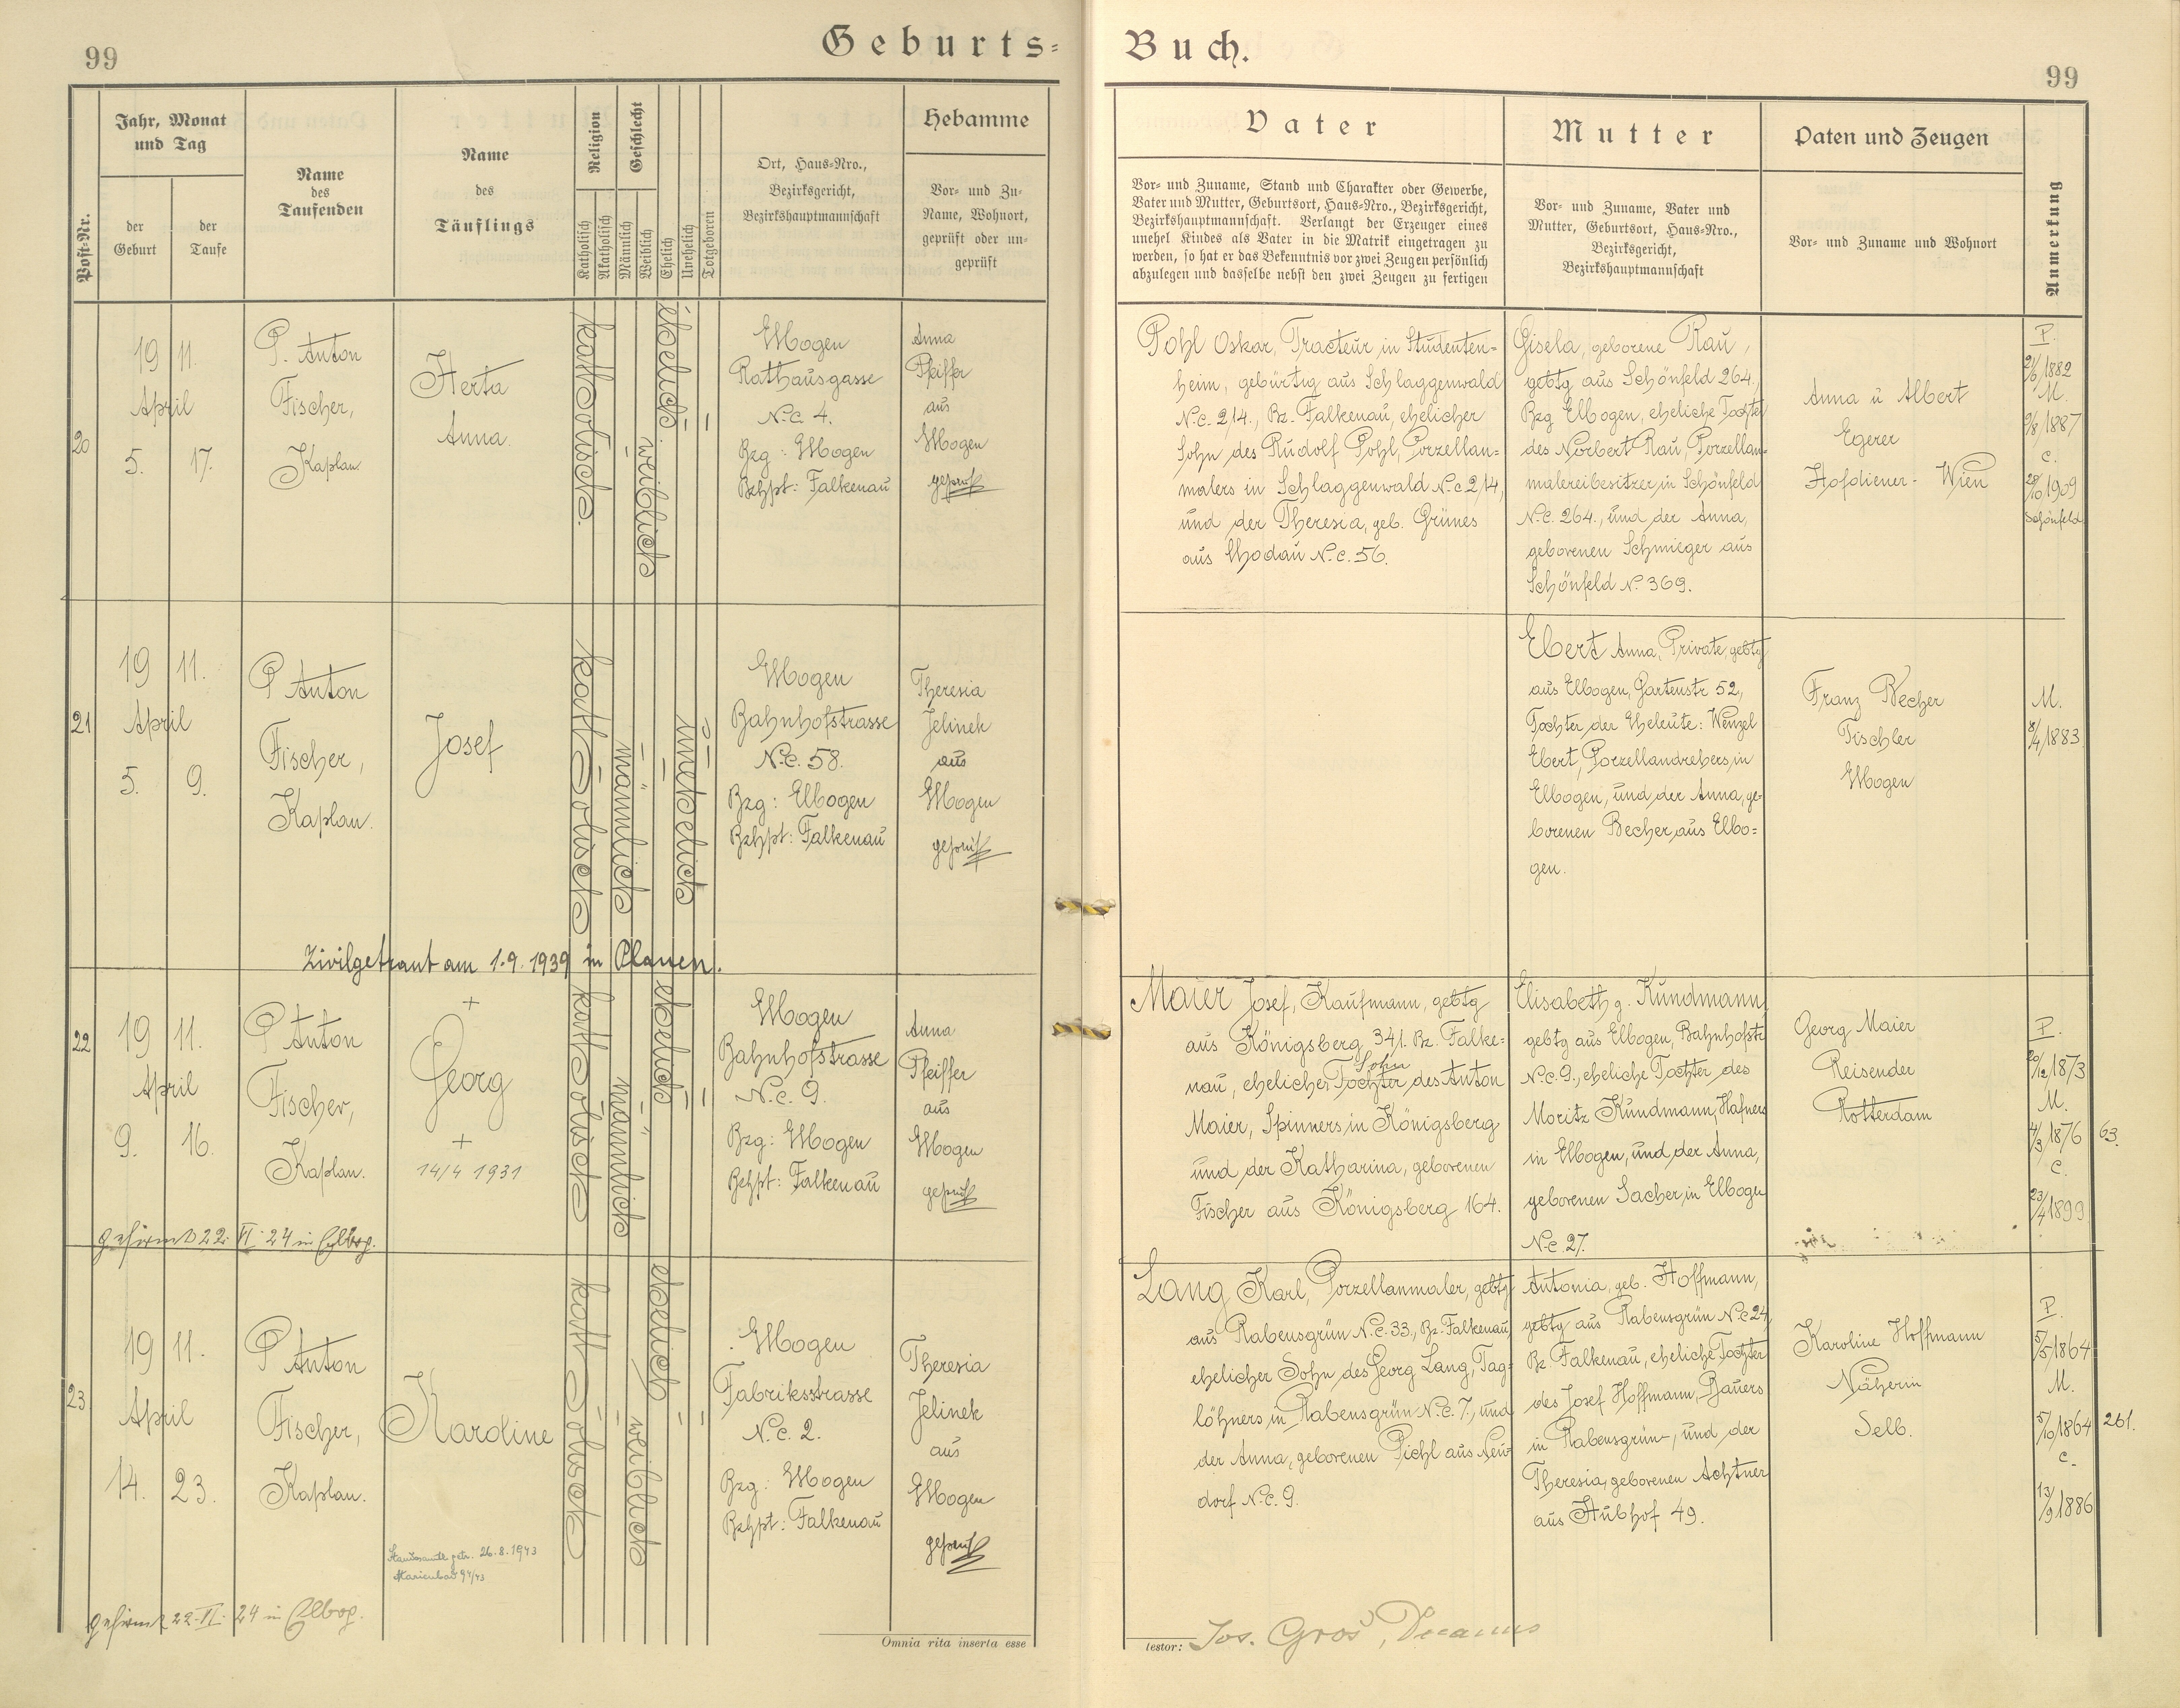 99
Geburts=
Buch.
99
Post-Nr.
Jahr, Monat
und Tag
der
Geburt
der
Taufe
Name
des
Taufenden
Name
des
Täuflings
Religion
Katholisch
Akatholisch
Geschlecht
Männlich
Weiblich
Ehelich
Unehelich
Totgeboren
Ort, Haus=Nro.,
Bezirksgericht,
Bezirkshauptmannschaft
Hebamme
Vor= und Zu=
Name, Wohnort,
geprüft oder un=
geprüft
Vater
Vor= und Zuname, Stand und Charakter oder Gewerbe,
Vater und Mutter, Geburtsort, Haus=Nro., Bezirksgericht,
Bezirkshauptmannschaft. Verlangt der Erzeuger eines
unehel Kindes als Vater in die Matrik eingetragen zu
werden, so hat er das Bekenntnis vor zwei Zeugen persönlich
abzulegen und dasselbe nebst den zwei Zeugen zu fertigen
Mutter
Vor= und Zuname, Vater und
Mutter, Geburtsort, Haus=Nro.,
Bezirksgericht,
Bezirkshauptmannschaft
Paten und Zeugen
Vor= und Zuname und Wohnort
Anmerkung
20
19 11.
April
5. 17.
P. Anton
Fischer,
Kaplan
Herta
Anna.
katholisch.
weiblich
ehelich.
Elbogen
Rathausgasse
N.c. 4.
Bzg: Elbogen
Bzhpt: Falkenau
Anna
Pfeiffer
aus
Elbogen
geprüft
Pohl Oskar, Tracteur in Studenten=
heim, gebürtig aus Schlaggenwald
N.c. 214., Bz. Falkenau, ehelicher
Sohn des Rudolf Pohl, Porzellan=
malers in Schlaggenwald N.c 214,
und der Theresia, geb. Grünes
aus Chodau N.c. 56.
Gisela, geborene Rau,
gebtg aus Schönfeld 264.,
Bzg Elbogen, eheliche Tochter
des Norbert Rau, Porzellan=
malereibesitzer, in Schönfeld
N.c. 264., und der Anna,
geborenen Schmieger aus
Schönfeld N. 369.
Anna u Albert
Egerer
Hofdiener - Wien
P.
21/6 1882
M.
9/8 1887
C.
28/10 1909
Schönfeld
21
19 11.
April
5. 9.
P Anton
Fischer,
Kaplan.
Josef
katholisch
männlich
unehelich
Elbogen
Bahnhofstrasse
N.c. 58.
Bzg: Elbogen
Bzhpt: Falkenau
Theresia
Jelinek
aus
Elbogen
geprüft
Ebert Anna, Private, gebtg
aus Elbogen, Gartenstr 52,
Tochter der Eheleute: Wenzel
Ebert, Porzellandrehers, in
Elbogen, und der Anna, ge=
borenen Becher, aus Elbo=
gen.
Franz Becher
Tischler
Elbogen
M.
8/4 1883
Zivilgetraut am 1.9.1939 in Plauen.
22
19 11.
April
9. 16.
P Anton
Fischer,
Kaplan.
+
Georg
+
14/4 1931
katholisch
männlich
ehelich
Elbogen
Bahnhofstrasse
N.c. 9.
Bzg: Elbogen
Bzhpt: Falkenau
Anna
Pfeiffer
aus
Elbogen
geprüft
Maier Josef, Kaufmann, gebtg
aus Königsberg 341. Bz. Falke=
Sohn
nau, ehelicher Tochter des Anton
Maier, Spinners in Königsberg
und der Katharina, geborenen
Fischer aus Königsberg 164.
Elisabeth g. Kundmann,
gebtg aus Elbogen, Bahnhofstr
N.c. 9., eheliche Tochter des
Moritz Kundmann, Hafners
in Elbogen, und der Anna,
geborenen Sacher, in Elbogen
N.c. 27.
Georg Maier
Reisender
Rotterdam
P.
20/12 1873
M.
4/3 1876
C.
23/4 1899
63.
gefirmt 22. VI. 24 in Elbog.
23
19 11.
April
14. 23.
P Anton
Fischer,
Kaplan.
Karoline
katholisch
weiblich
ehelich
Elbogen
Fabriksstrasse
N.c. 2.
Bzg: Elbogen
Bzhpt: Falkenau
Theresia
Jelinek
aus
Elbogen
geprüft
Lang Karl, Porzellanmaler, gebtg
aus Rabensgrün N.c. 33., Bz. Falkenau,
ehelicher Sohn des Georg Lang, Tag=
löhners in Rabensgrün N.c. 7., und
der Anna, geborenen Pichl aus Neu=
dorf N.c. 9.
Antonia, geb. Hoffmann,
gebtg aus Rabensgrün N.c 24,
Bz Falkenau, eheliche Tochter
des Josef Hoffmann, Bauers
in Rabensgrün, und der
Theresia, geborenen Achtner
aus Stubhof 49.
Karoline Hoffmann
Näherin
Selb.
P.
5/5 1864
M.
5/10 1864
C.
13/9 1886
261.
Standesamtl. getr. 26.8.1943
Marienbad 94/43
gefirmt 22. VI. 24 in Elbog.
Omnia rita inserta esse
testor: Jos. Groš, Decanus